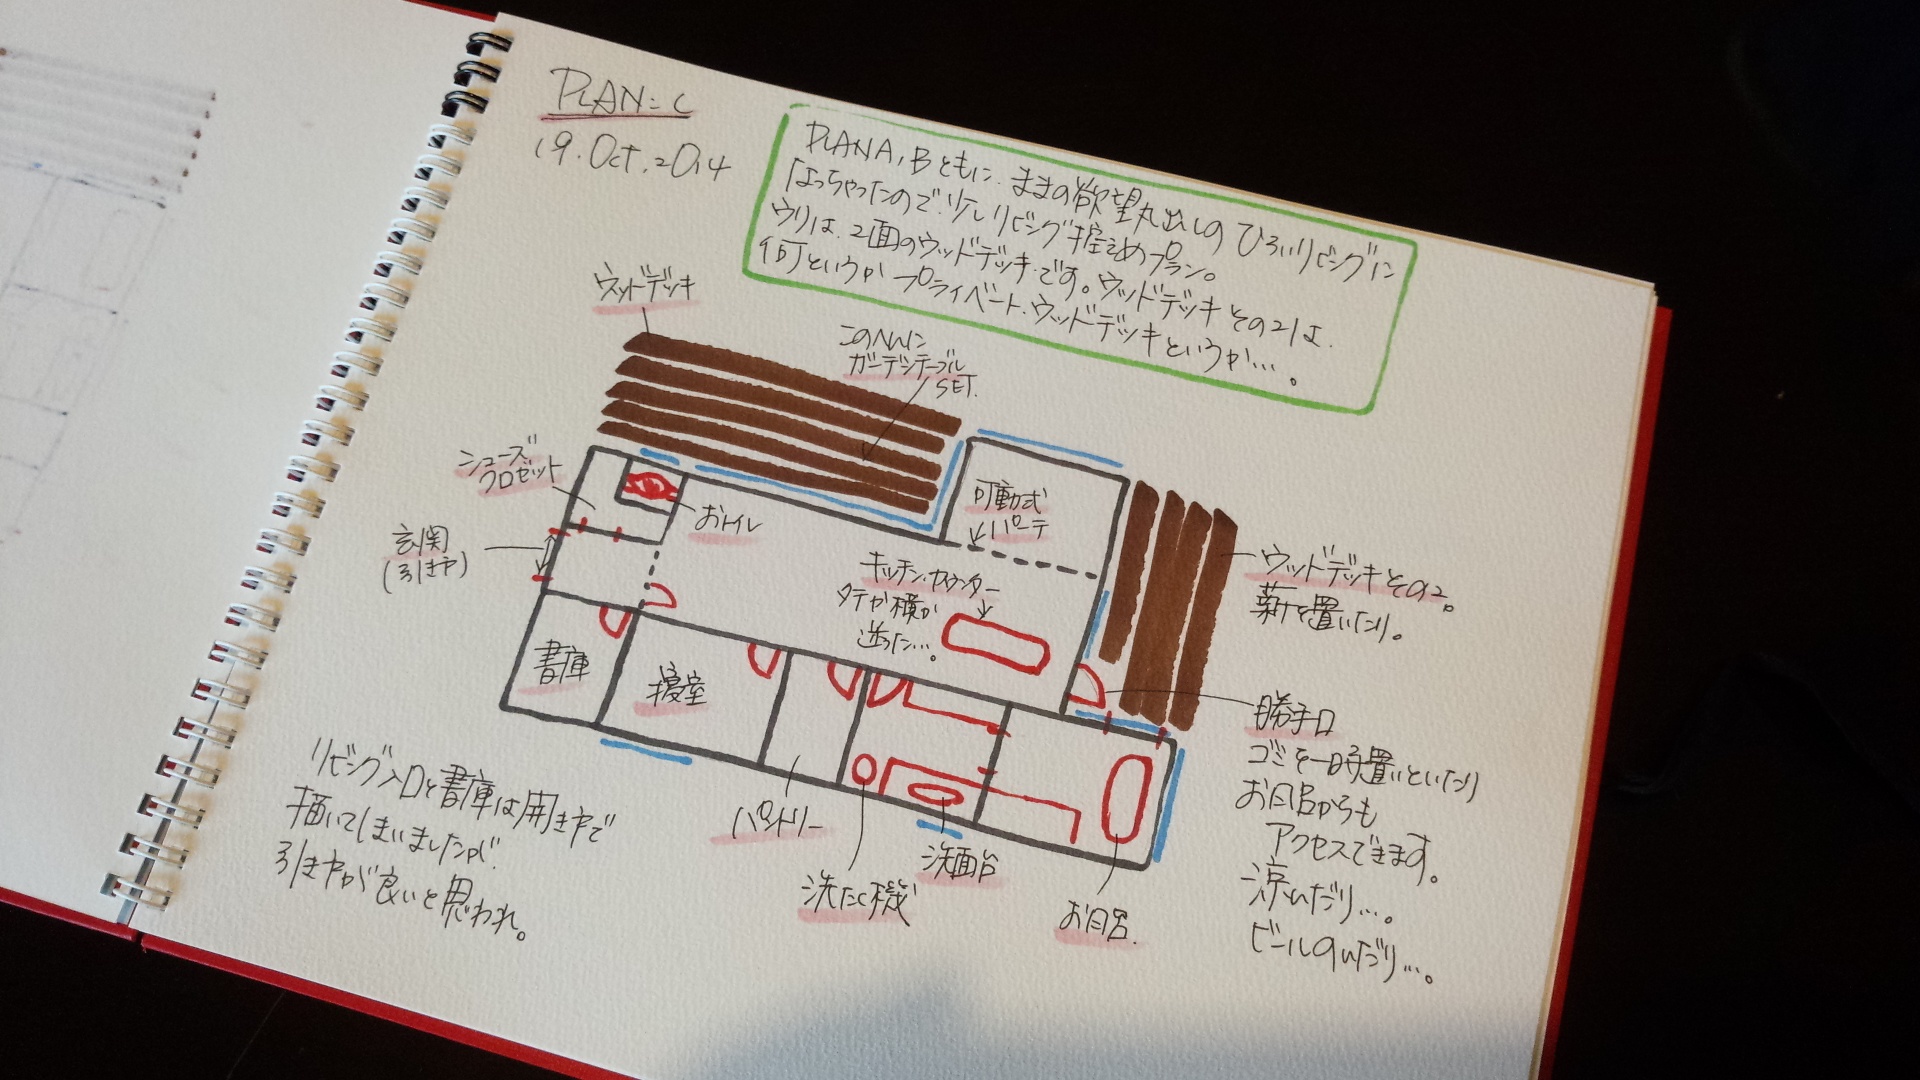 PLAN=C
19.Oct.2014
PLANA,Bともに、ままの欲望丸出しのひろいリビングに
なっちゃったので、少しリビング控えめプラン。
ウリは、2面のウッドデッキです。ウッドデッキその2は、
何というか プライベート、ウッドデッキというか…。
ウッドデッキ
このへんに
ガーデンテーブル
SET.
シューズ
クロゼット
おトイレ
可動式
パーテ
玄関
(引き戸)
キッチンカウンター
タテか横か
迷った…。
ウッドデッキその2。
薪を置いたり。
書庫
寝室
勝手口
ゴミを一時置いといたり
お風呂からも
アクセスできます。
涼んだり…。
ビールのんだり…。
パントリー
洗たく機
洗面台
お風呂.
リビング入口と書庫は開き戸で
描いてしまいましたが、
引き戸が良いと思われ。